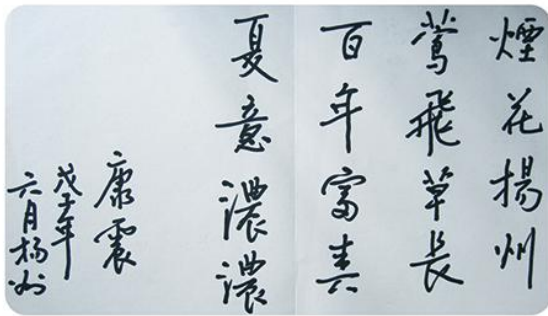 煙花揚州
鶯飛草長
百年富春
夏意濃濃
康震
戊子年
六月揚州